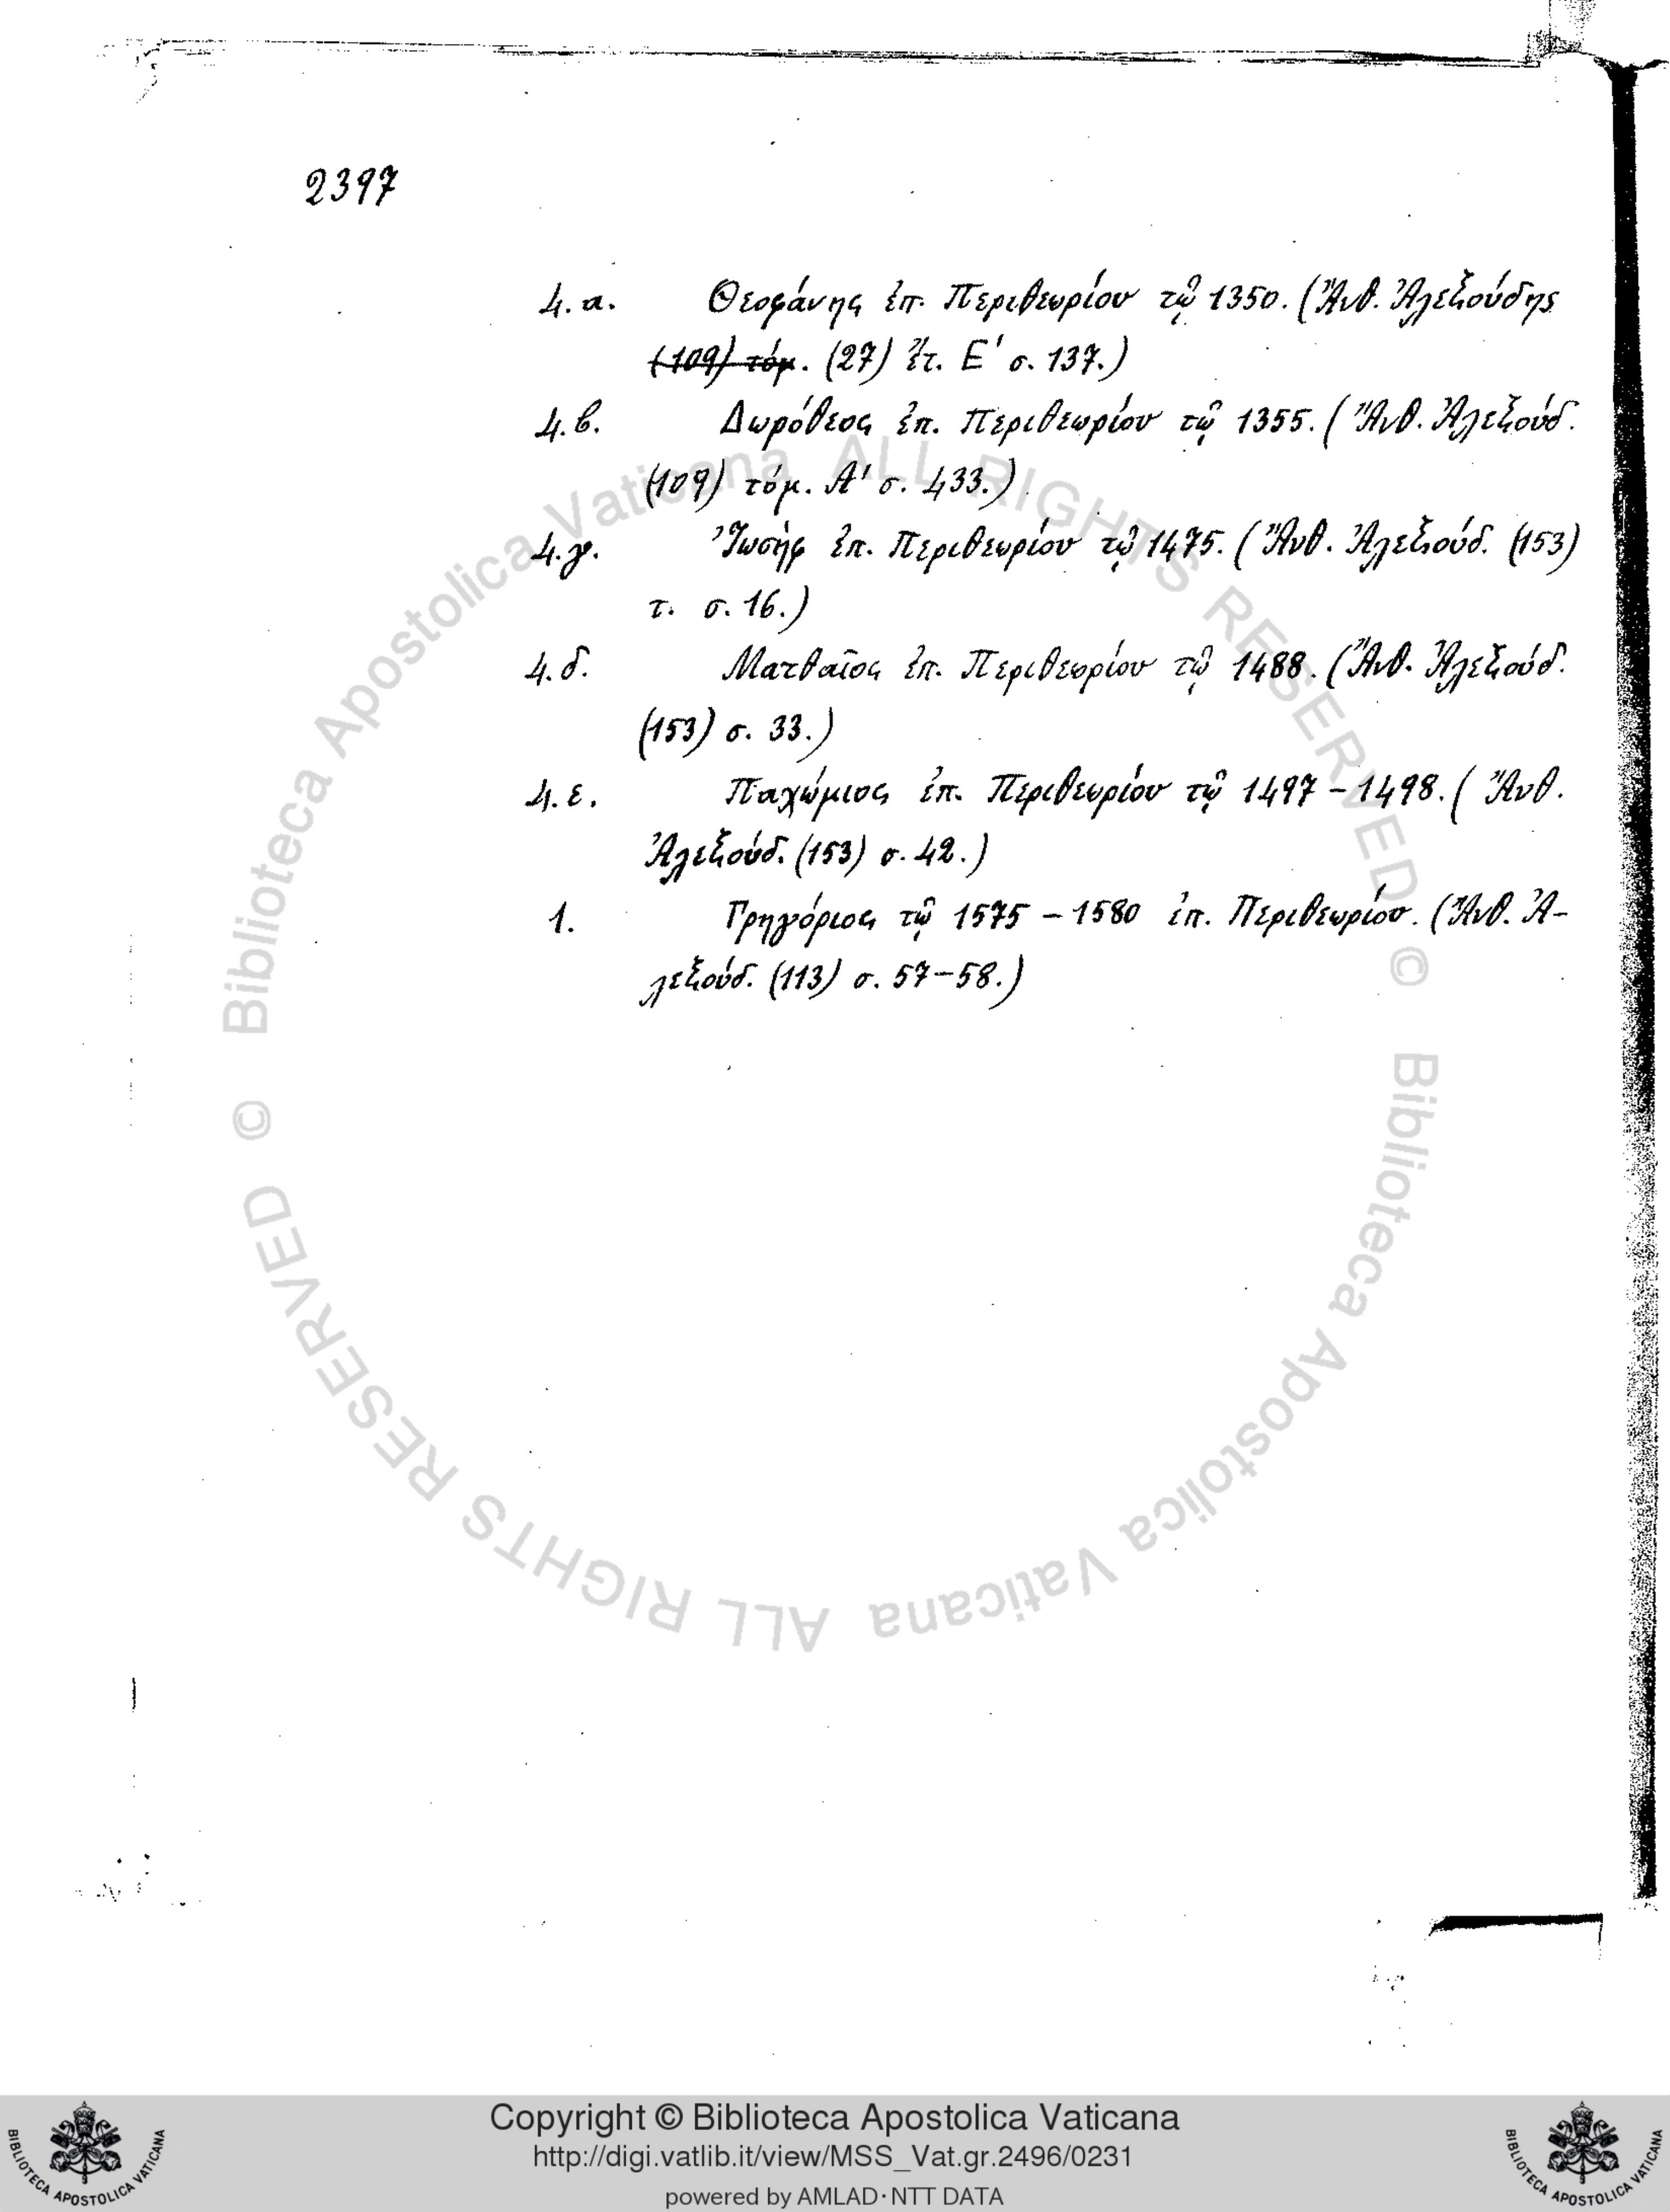 2397
4.α. Θεοφάνης ἐπ. Περιθεωρίου τῷ 1350. (Ἄνθ. Ἀλεξούδης
(109) τόμ. (27) ἔτ. Ε' σ. 137.)
4.β. Δωρόθεος ἐπ. Περιθεωρίου τῷ 1355. (Ἄνθ. Ἀλεξούδ.
(109) τόμ. Α' σ. 433.)
4.γ. Ἰωσὴφ ἐπ. Περιθεωρίου τῷ 1475. (Ἄνθ. Ἀλεξούδ. (153)
τ. σ. 16.)
4.δ. Ματθαῖος ἐπ. Περιθεορίου τῷ 1488. (Ἄνθ. Ἀλεξούδ.
(153) σ. 33.)
4.ε. Παχώμιος ἐπ. Περιθεωρίου τῷ 1497 – 1498. (Ἄνθ.
Ἀλεξούδ. (153) σ. 42.)
1. Γρηγόριος τῷ 1575 – 1580 ἐπ. Περιθεωρίου. (Ἄνθ. Ἀ-
λεξούδ. (113) σ. 57–58.)
© Biblioteca Apostolica Vaticana ALL RIGHTS RESERVED
© Biblioteca Apostolica Vaticana ALL RIGHTS RESERVED
BIBLIOTECA APOSTOLICA VATICANA
Copyright © Biblioteca Apostolica Vaticana
http://digi.vatlib.it/view/MSS_Vat.gr.2496/0231
powered by AMLAD·NTT DATA
BIBLIOTECA APOSTOLICA VATICANA